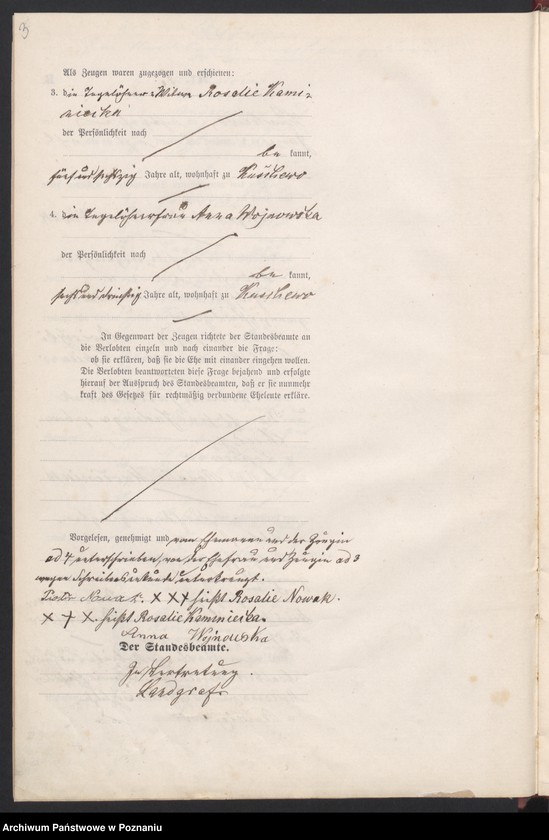 3
Als Zeugen waren zugezogen und erschienen:
3. die Tagelöhner-Witwe Rosalie Kami=
nieika
der Persönlichkeit nach
be kannt,
fünf und sechszig Jahre alt, wohnhaft zu Kuschewo
4. die Tagelöhnerfrau Anna Wojnowska
der Persönlichkeit nach
be kannt,
sechs und dreißig Jahre alt, wohnhaft zu Kuschewo
In Gegenwart der Zeugen richtete der Standesbeamte an
die Verlobten einzeln und nach einander die Frage:
ob sie erklären, daß sie die Ehe mit einander eingehen wollen.
Die Verlobten beantworteten diese Frage bejahend und erfolgte
hierauf der Ausspruch des Standesbeamten, daß er sie nunmehr
kraft des Gesetzes für rechtmäßig verbundene Eheleute erkläre.
Vorgelesen, genehmigt und vom Ehemann und der Zeugin
ad 4 unterschrieben, von der Ehefrau und Zeugin ad 3
wegen Schreibensunkunde unterkreuzt.
Piotr Nowak. XXX heißt Rosalie Nowak.
X X X. heißt Rosalie Kaminieika.
Anna Wojnowska
Der Standesbeamte.
In Vertretung.
Landgraf
Archiwum Państwowe w Poznaniu